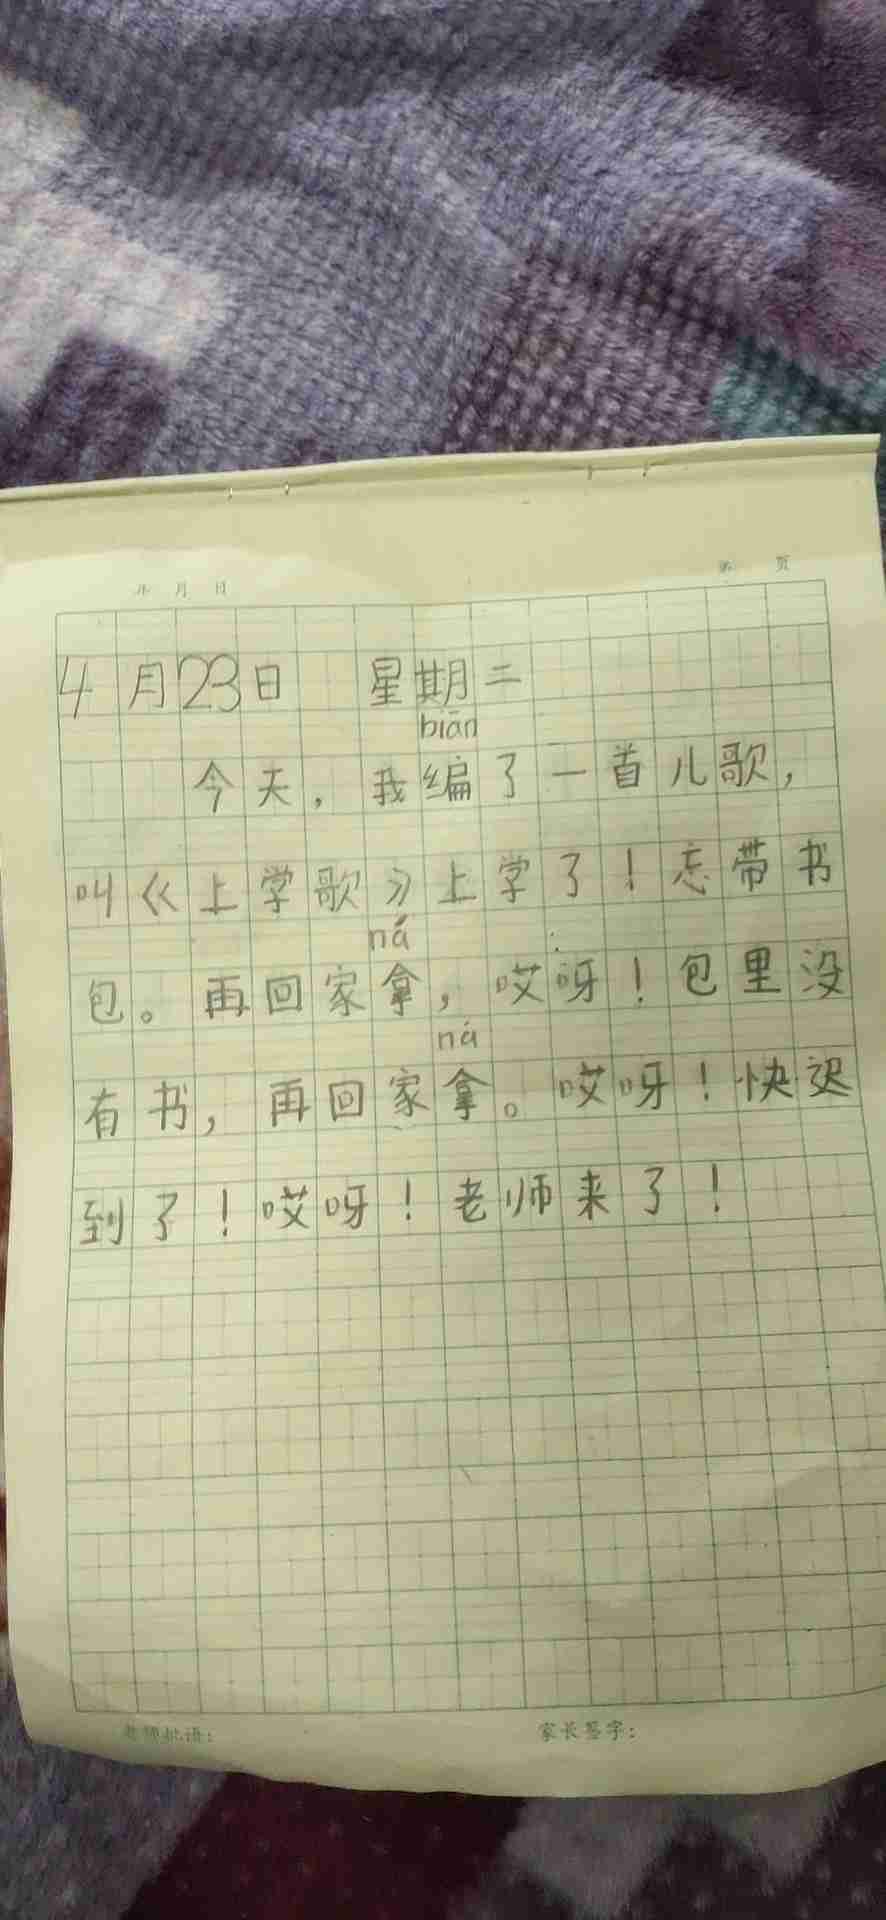 年 月 日 第 页
4月23日 星期二
biān
今天，我编了一首儿歌，
叫《上学歌》上学了！忘带书
ná
包。再回家拿，哎呀！包里没
ná
有书，再回家拿。哎呀！快迟
到了！哎呀！老师来了！
老师批语： 家长签字：